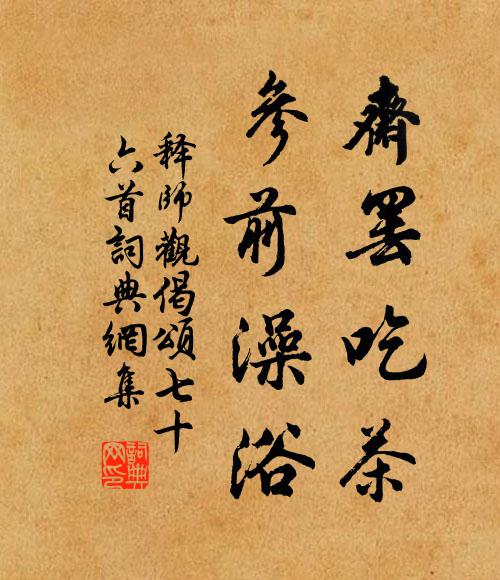 齋罷吃茶
參前澡浴
释師觀偈頌七十
六首詞典網集
詞典
网印